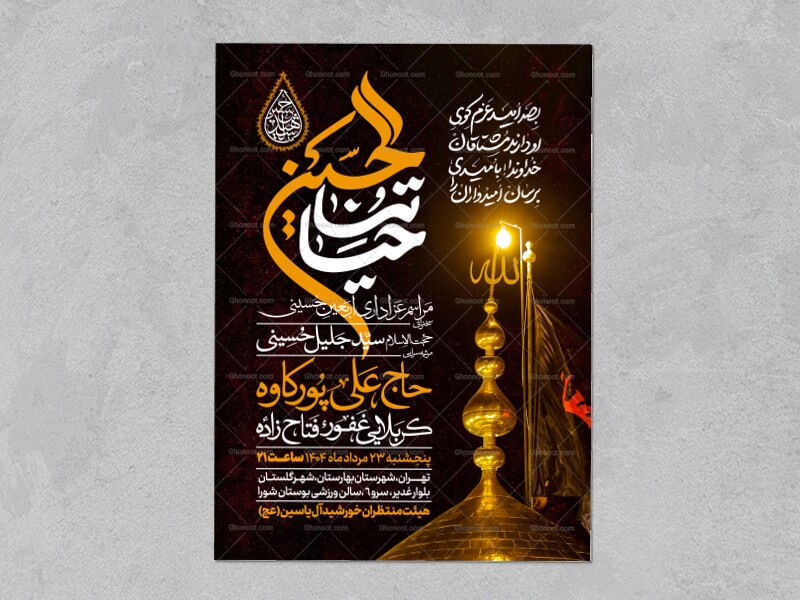 بصد امید عزم کوی
او دارند مشتاقان
خداوندا بامیدی
برسان امیدواران را
الحسین
حیاتنا
مراسم عزاداری اربعین حسینی
سخنرانی
حجت الاسلام سید جلیل حسینی
مرثیه سرایی
حاج علی پورکاوه
کربلایی غفور فتاح زاده
پنجشنبه ۲۳ مرداد ماه ۱۴۰۴ ساعت ۲۱
تهران، شهرستان بهارستان، شهر گلستان
بلوار غدیر، سرو ٦، سالن ورزشی بوستان شورا
هیئت منتظران خورشید آل یاسین (عج)
الله
Ghonoot.com